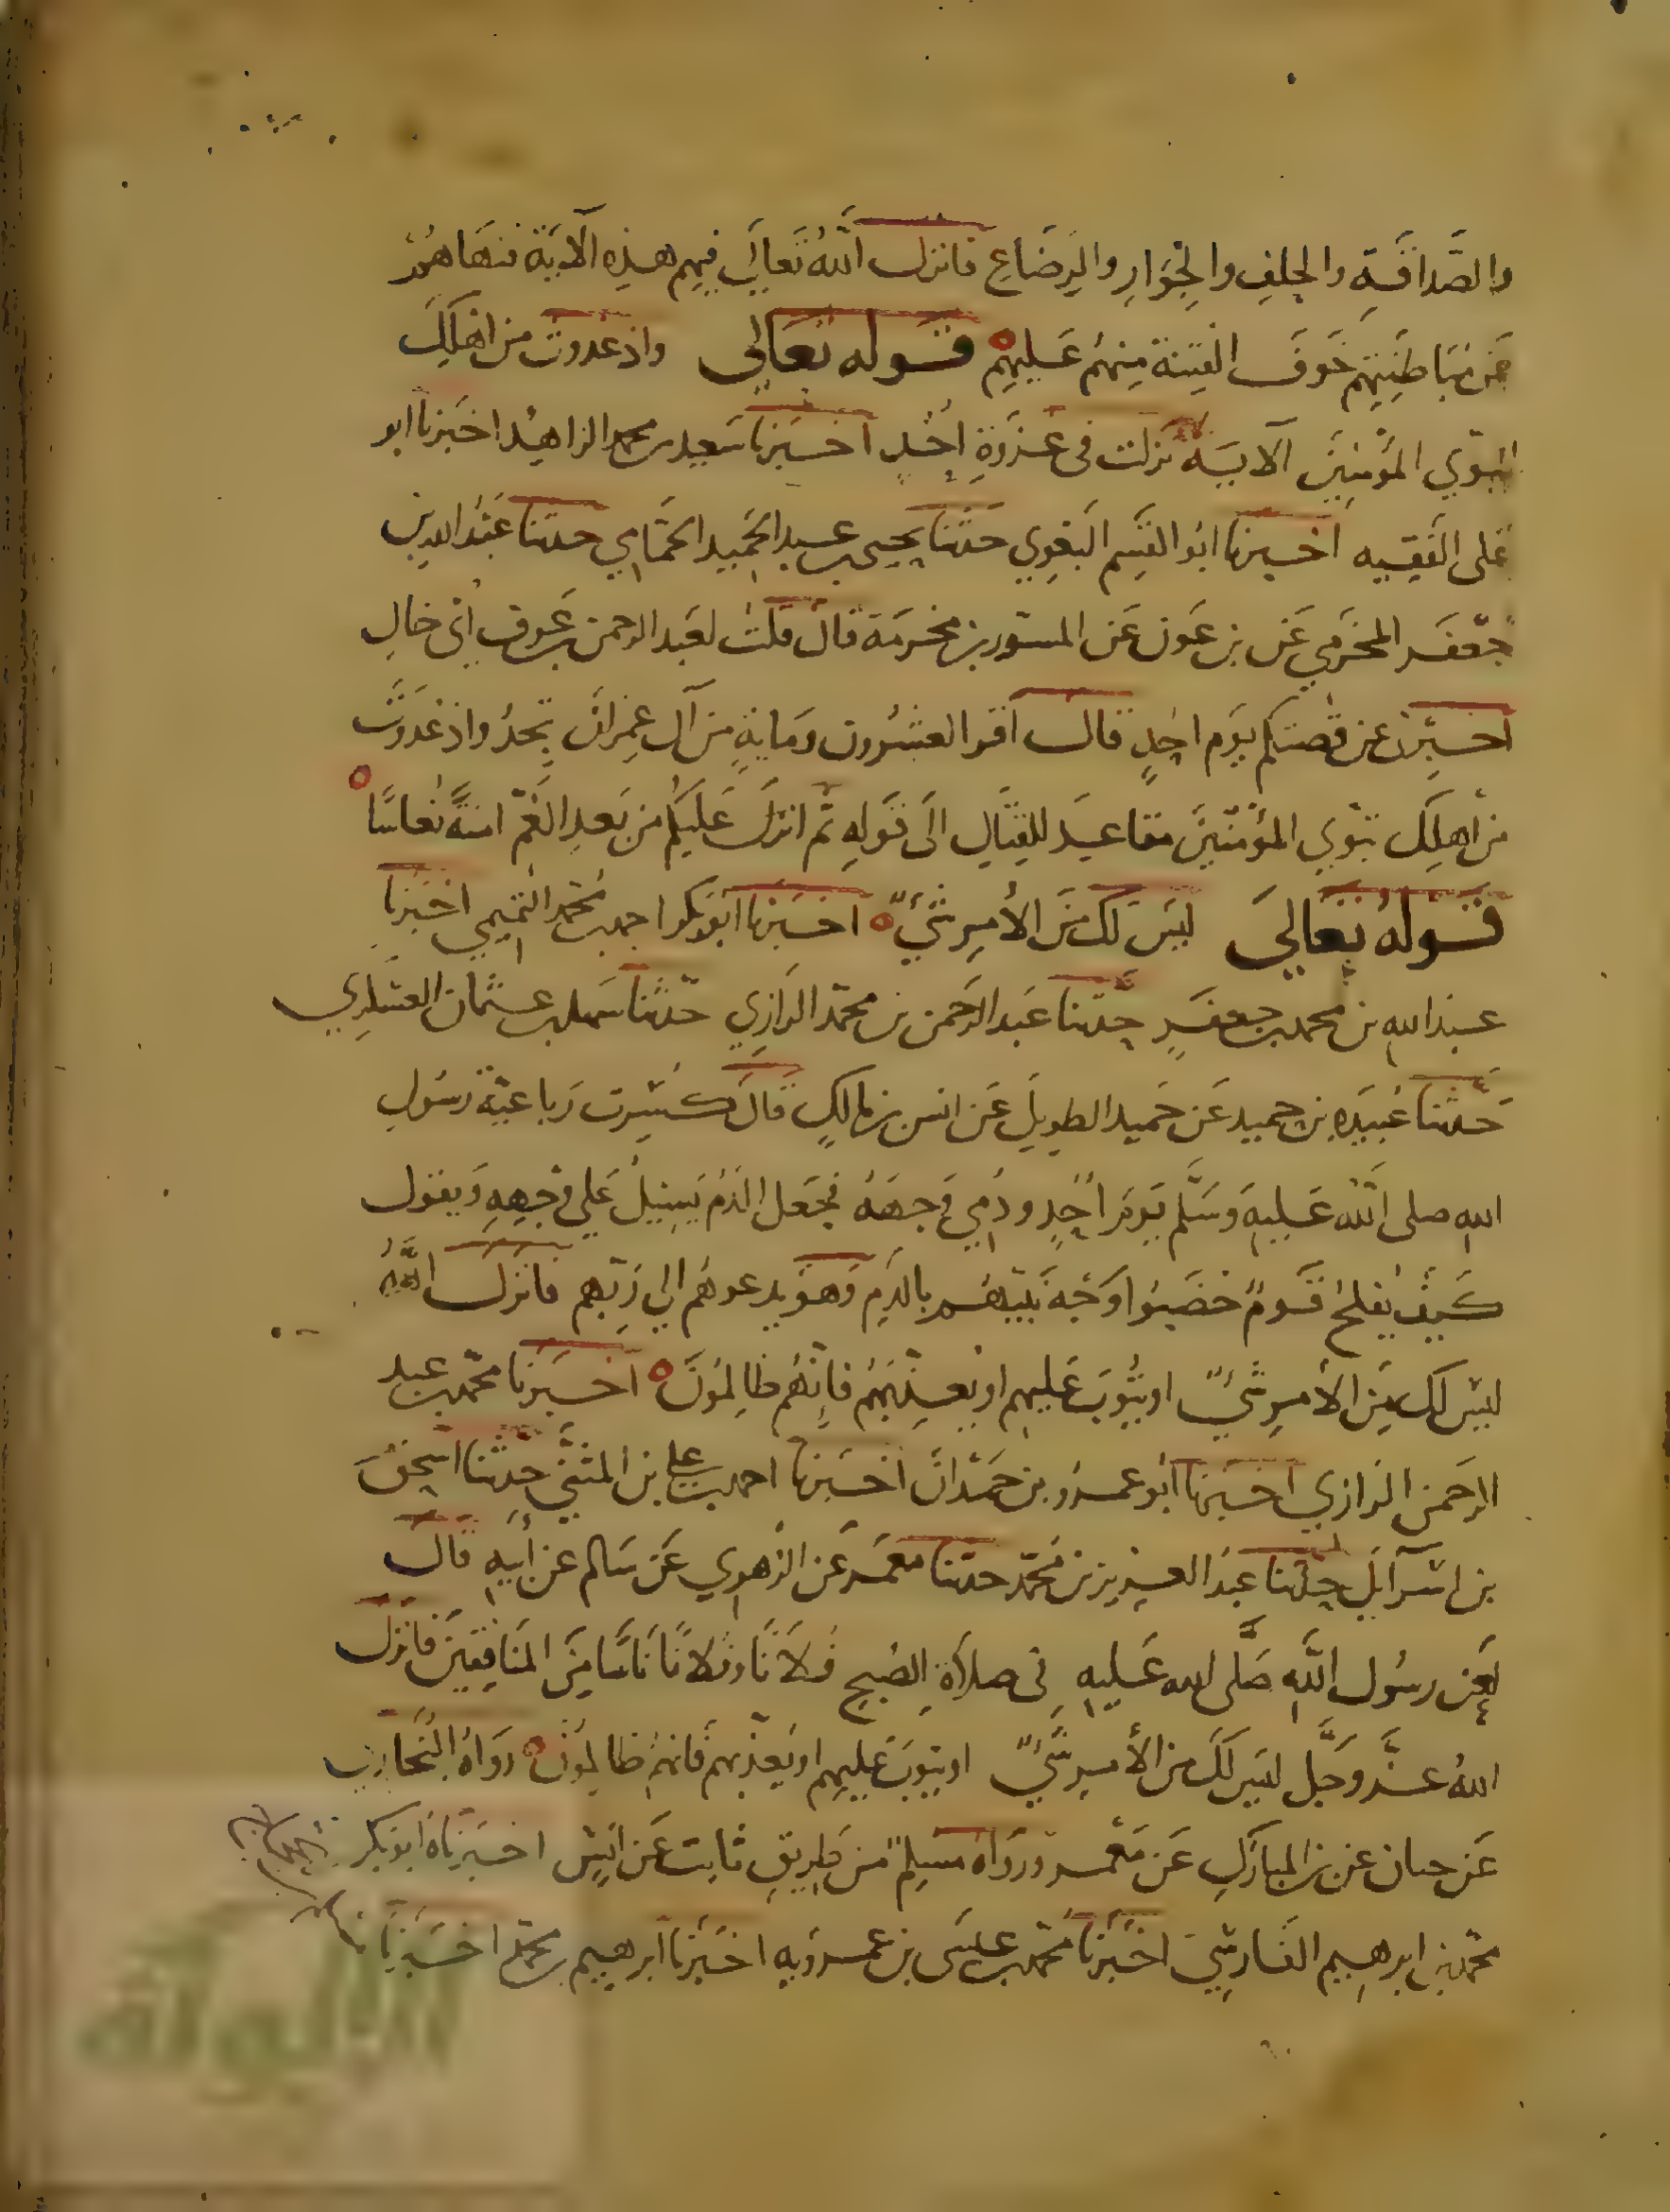 والصَّداقَةِ والحِلفِ والجِوَارِ والرِضَاعِ فانزل اللهُ تَعَالَى فيهِم هذِه الآيَةَ فنهَاهُمْ
عَن مُبَاطَنَتِهِم خَوفَ الفِتنة مِنهُم عَلَيهِم قوله تعالى واذ غدوت من اهلِكَ
تبوّي المؤمنِينَ الآيَة نَزَلت في غَزْوَةِ اُحُدٍ اخبَرنا سَعِيد بن محمد الزاهِد اخبَرنا ابو
على الفَقِيه اخبرنا ابُو القَسِم البَغوِي حَدَّثنا يحيى بن عبد الحَمِيد الحَمّاني حدثنا عَبْدُ الله بن
جَعْفَر المخرَمِي عَن بن عَون عَن المسور بن مخرمَة قال قلت لعَبد الرحمن بن عَوف أي خالِ
اخبِرني عن قصتكم يَوم اُحُدٍ قال اقرَا العشرون ومايةِ مِن آل عِمرانَ تجدُ واذ غدوتَ
من اهلِكَ تبَوّي المؤمنينَ مقاعِدَ للقِتَالِ الَى قَولِهِ ثم انزلَ عَليكُم من بَعدِ الغَمّ امنَةً نُعاسًا
قوله تعَالى ليسَ لك مِنَ الأمرِ شَيءٌ اخبَرنا ابُو بكر احمد بن محمد التميمي اخبَرنا
عبد الله بن محمد بن جعفَرٍ حدّثنا عَبد الرَحمن بن محمد الرازي حدّثنا سَهل بن عثمان العسكري
حَدّثنا عُبَيدَة بن حميد عَن حُميد الطويلِ عَن انس بن مالكٍ قالَ كُسِرت رَباعيَة رسُول
الله صلى اللهُ عَليهِ وَسَلَّم يَومَ اُحُدٍ ودُمي وَجهَهُ فجعَل الدَمُ يَسِيلُ عَلى وَجهِهِ وَيقول
كَيفَ يُفلحُ قَومٌ خَضَبُوا وَجْهَ نَبِيّهُم بالدَمِ وَهوَ يدعوهُم الى رَبّهم فانزل اللَّهُ
ليسَ لك مِن الأمرِ شَيءٌ او يتُوبَ عَليهم او يعذِبَهُم فاِنَّهُم ظالِمُونَ اخبَرنا محمد بن عبد
الرحمن الرازي اخبَرنا ابُو عمرو بن حَمْدانَ اخبَرنا احمد بن علي بن المثنّى حدثنا اسحقُ
بن اسرآيل حدّثنا عَبدُ العزيز بن مُحمّد حدثنا معمَر عَن الزهوي عَن سَالم عن أبيه قال
لَعَن رسُول اللَّهِ صَلَّى الله عَليهِ في صلاَةِ الصُبحِ فُلاَنًا وفُلانًا نَاسًا مِنَ المنَافِقينَ فانزلَ
اللهُ عَزَّ وَجَلَّ ليسَ لكَ من الأمرِ شَيءٌ او يتوبَ عليهِم او يُعذّبهم فانهُم ظالمونَ رَوَاهُ البُخَارِي
عَن حبان عن بن المبارَكِ عَن مَعْمَر ورَوَاهُ مُسلم مِن طريقِ ثابت عَن انَسٍ اخبَرناهُ ابو بكر
محمد بن ابرهيم الفَارِسيَ اخبَرَنا مُحمّد بن عيسَى بن عمرويهِ اخبَرنا ابرهيم بن محمد اخبَرنا
الألوكة